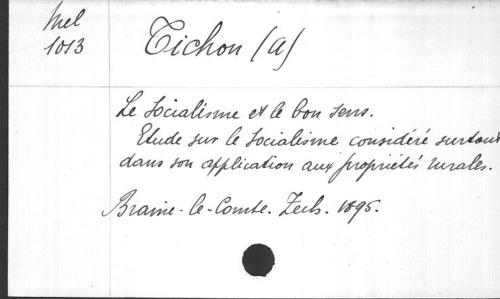 Mel
1013
Tichon (A)
Le Socialisme et le bon sens.
Etude sur le Socialisme considéré surtout
dans son application aux propriétés rurales.
Braine-le-Comte. Zech. 1895.